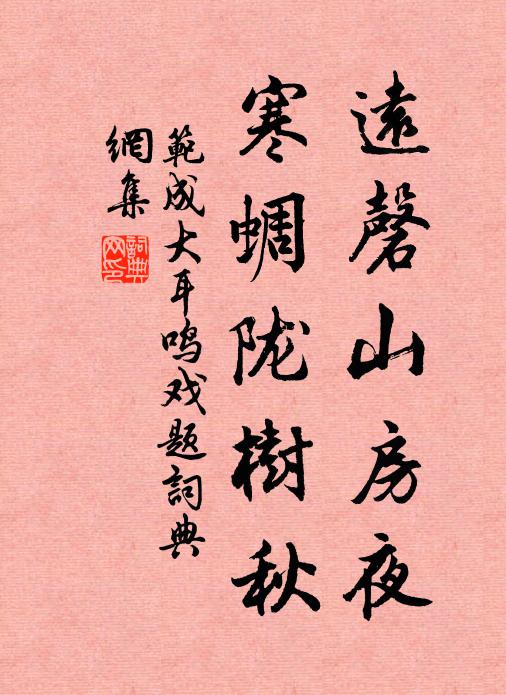 遠磬山房夜
寒蜩陇樹秋
範成大耳鸣戏题詞典
網集
詞典网印